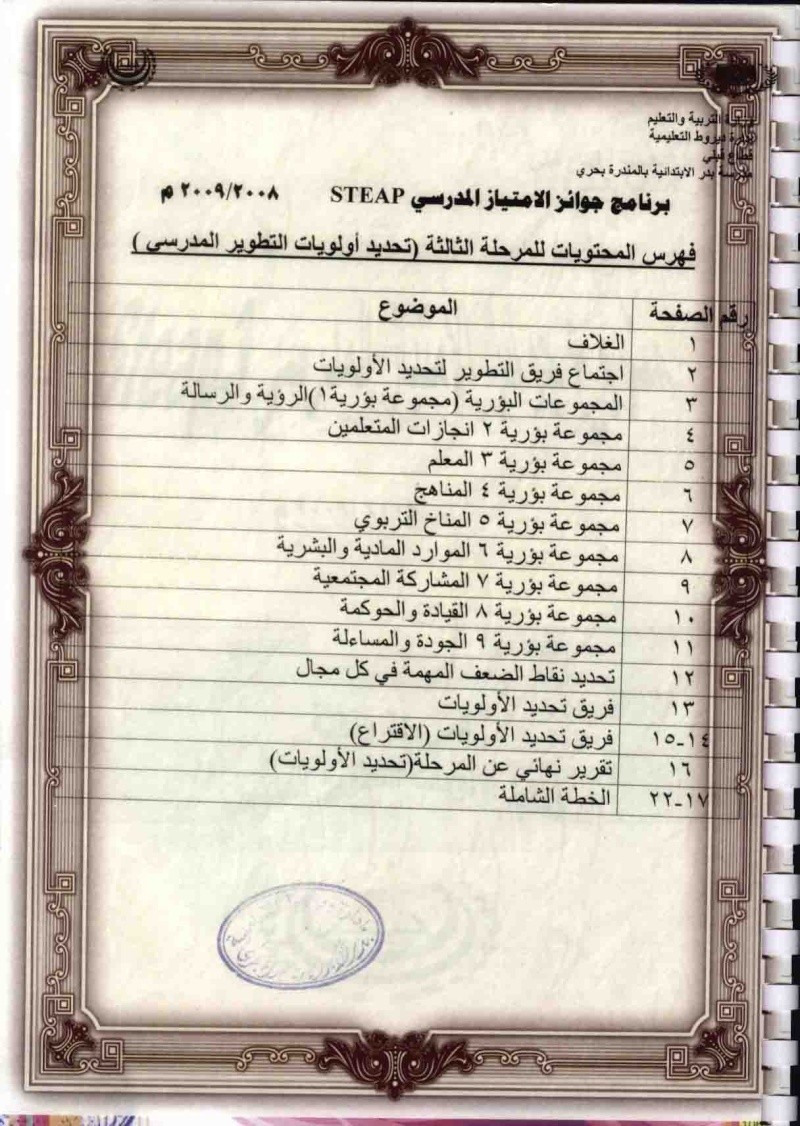 وزارة التربية والتعليم
إدارة ديروط التعليمية
قطاع قبلي
مدرسة بدر الابتدائية بالمندرة بحري
برنامج جوائز الامتياز المدرسي STEAP ٢٠٠٩/٢٠٠٨ م
فهرس المحتويات للمرحلة الثالثة (تحديد أولويات التطوير المدرسي )
رقم الصفحة الموضوع
١ الغلاف
٢ اجتماع فريق التطوير لتحديد الأولويات
٣ المجموعات البؤرية (مجموعة بؤرية١)الرؤية والرسالة
٤ مجموعة بؤرية ٢ انجازات المتعلمين
٥ مجموعة بؤرية ٣ المعلم
٦ مجموعة بؤرية ٤ المناهج
٧ مجموعة بؤرية ٥ المناخ التربوي
٨ مجموعة بؤرية ٦ الموارد المادية والبشرية
٩ مجموعة بؤرية ٧ المشاركة المجتمعية
١٠ مجموعة بؤرية ٨ القيادة والحوكمة
١١ مجموعة بؤرية ٩ الجودة والمساءلة
١٢ تحديد نقاط الضعف المهمة في كل مجال
١٣ فريق تحديد الأولويات
١٤-١٥ فريق تحديد الأولويات (الاقتراع)
١٦ تقرير نهائي عن المرحلة(تحديد الأولويات)
١٧-٢٢ الخطة الشاملة